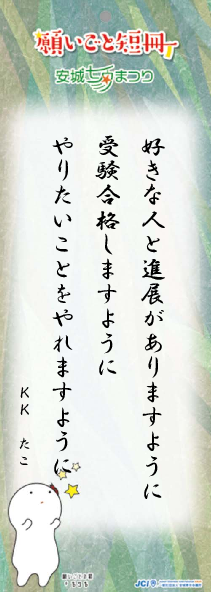 願いごと短冊
安城七夕まつり
好きな人と進展がありますように
受験合格しますように
やりたいことをやれますように
KK たこ
JCI